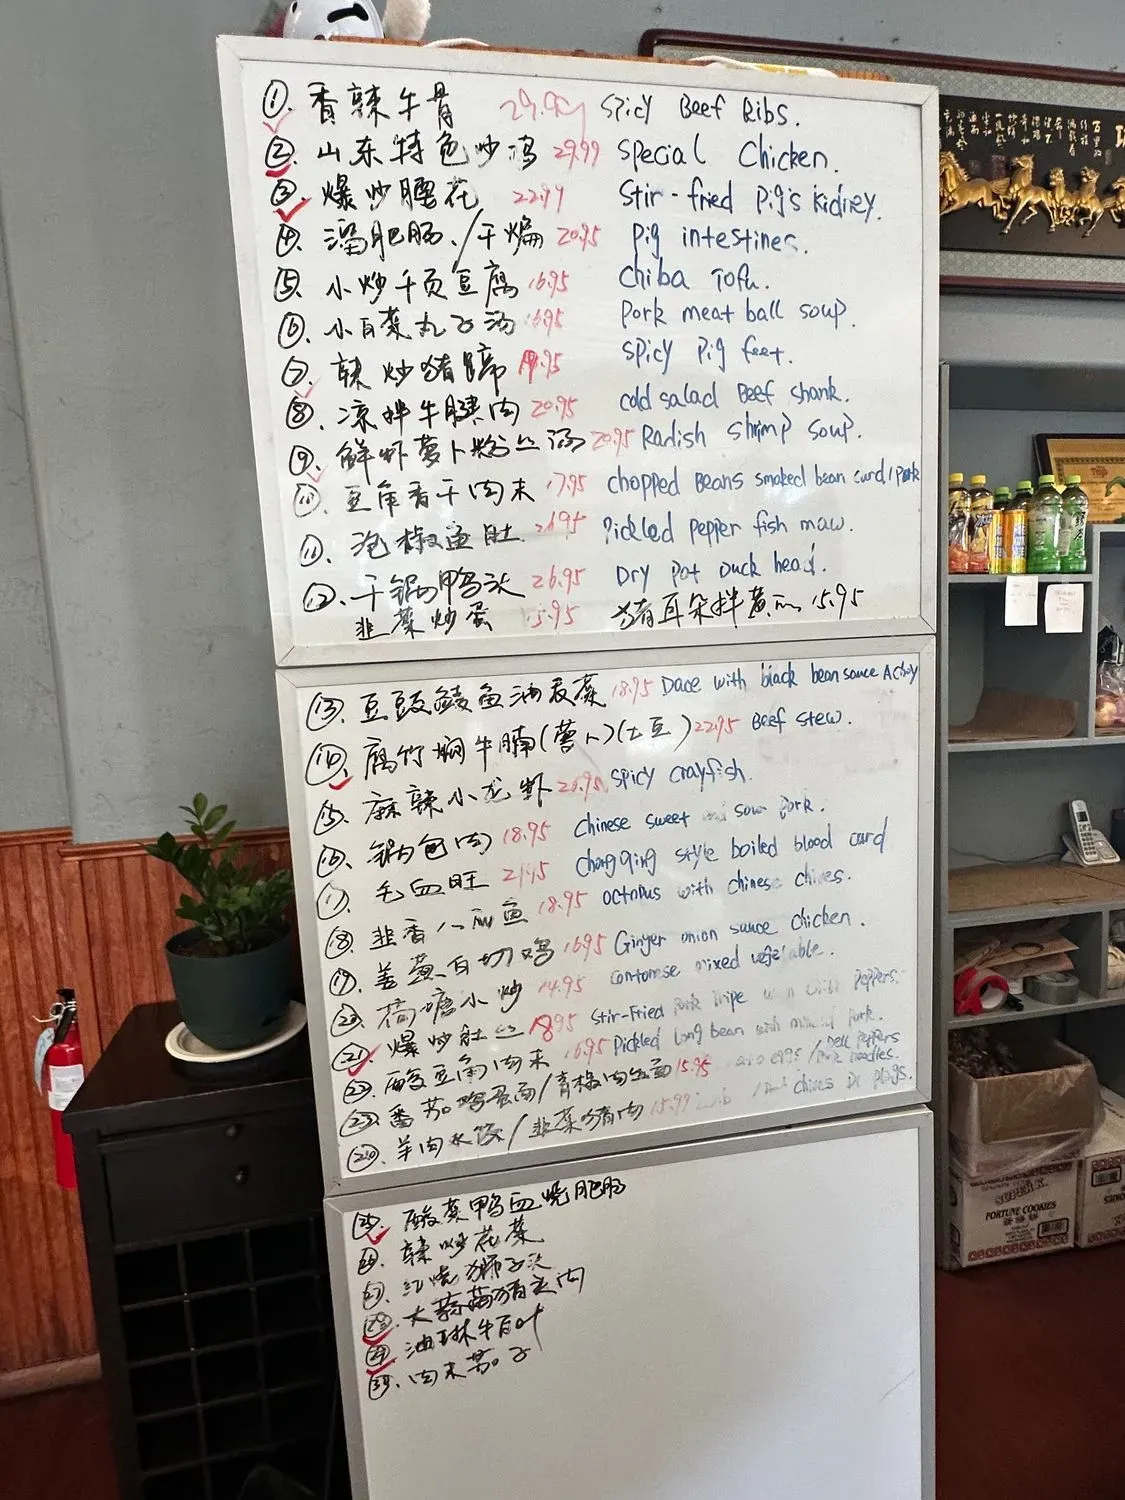 ① 香辣牛骨 29.99 Spicy Beef Ribs.
② 山东特色炒鸡 29.99 Special Chicken.
③ 爆炒腰花 22.99 Stir-fried pig's kidney.
④ 溜肥肠/干煸 20.95 pig intestines.
⑤ 小炒千页豆腐 16.95 chiba Tofu.
⑥ 小白菜丸子汤 16.95 Pork meat ball soup.
⑦ 辣炒猪蹄 19.95 Spicy pig feet.
⑧ 凉拌牛腱肉 20.95 cold salad Beef shank.
⑨ 鲜虾萝卜粉丝汤 20.95 Radish shrimp soup.
⑩ 豆角香干肉末 17.95 chopped Beans smoked bean curd/pork
⑪ 泡椒鱼肚 26.95 Pickled pepper fish maw.
⑫ 干锅鸭头 26.95 Dry Pot Duck head.
韭菜炒蛋 15.95 猪耳朵拌黄瓜 15.95
⑬ 豆豉鲮鱼油麦菜 18.95 Dace with black bean sauce
⑭ 腐竹焖牛腩(萝卜)(土豆) 22.95 Beef stew.
⑮ 麻辣小龙虾 20.95 Spicy crayfish.
⑯ 锅包肉 18.95 Chinese sweet and sour Pork.
⑰ 毛血旺 21.95 Chongqing style boiled blood curd
⑱ 韭香八爪鱼 18.95 octopus with chinese chives.
⑲ 姜葱白切鸡 16.95 Ginger onion sauce chicken.
⑳ 荷塘小炒 14.95 Cantonese mixed vegetable.
㉑ 爆炒肚丝 18.95 Stir-Fried Pork Tripe with Peppers.
㉒ 酸豆角肉末 16.95 Pickled long bean with minced Pork.
㉓ 番茄鸡蛋面/青椒肉丝面 15.95 eggs / Bell Peppers Pork noodles.
㉔ 羊肉水饺/韭菜猪肉 15.99 chives
㉕ 酸菜鸭血烧肥肠
㉖ 辣炒花菜
㉗ 红烧狮子头
㉘ 大蒜猪肉
㉙ 油淋牛百叶
㉚ 肉末茄子
TOP
SUPER K
FORTUNE COOKIES